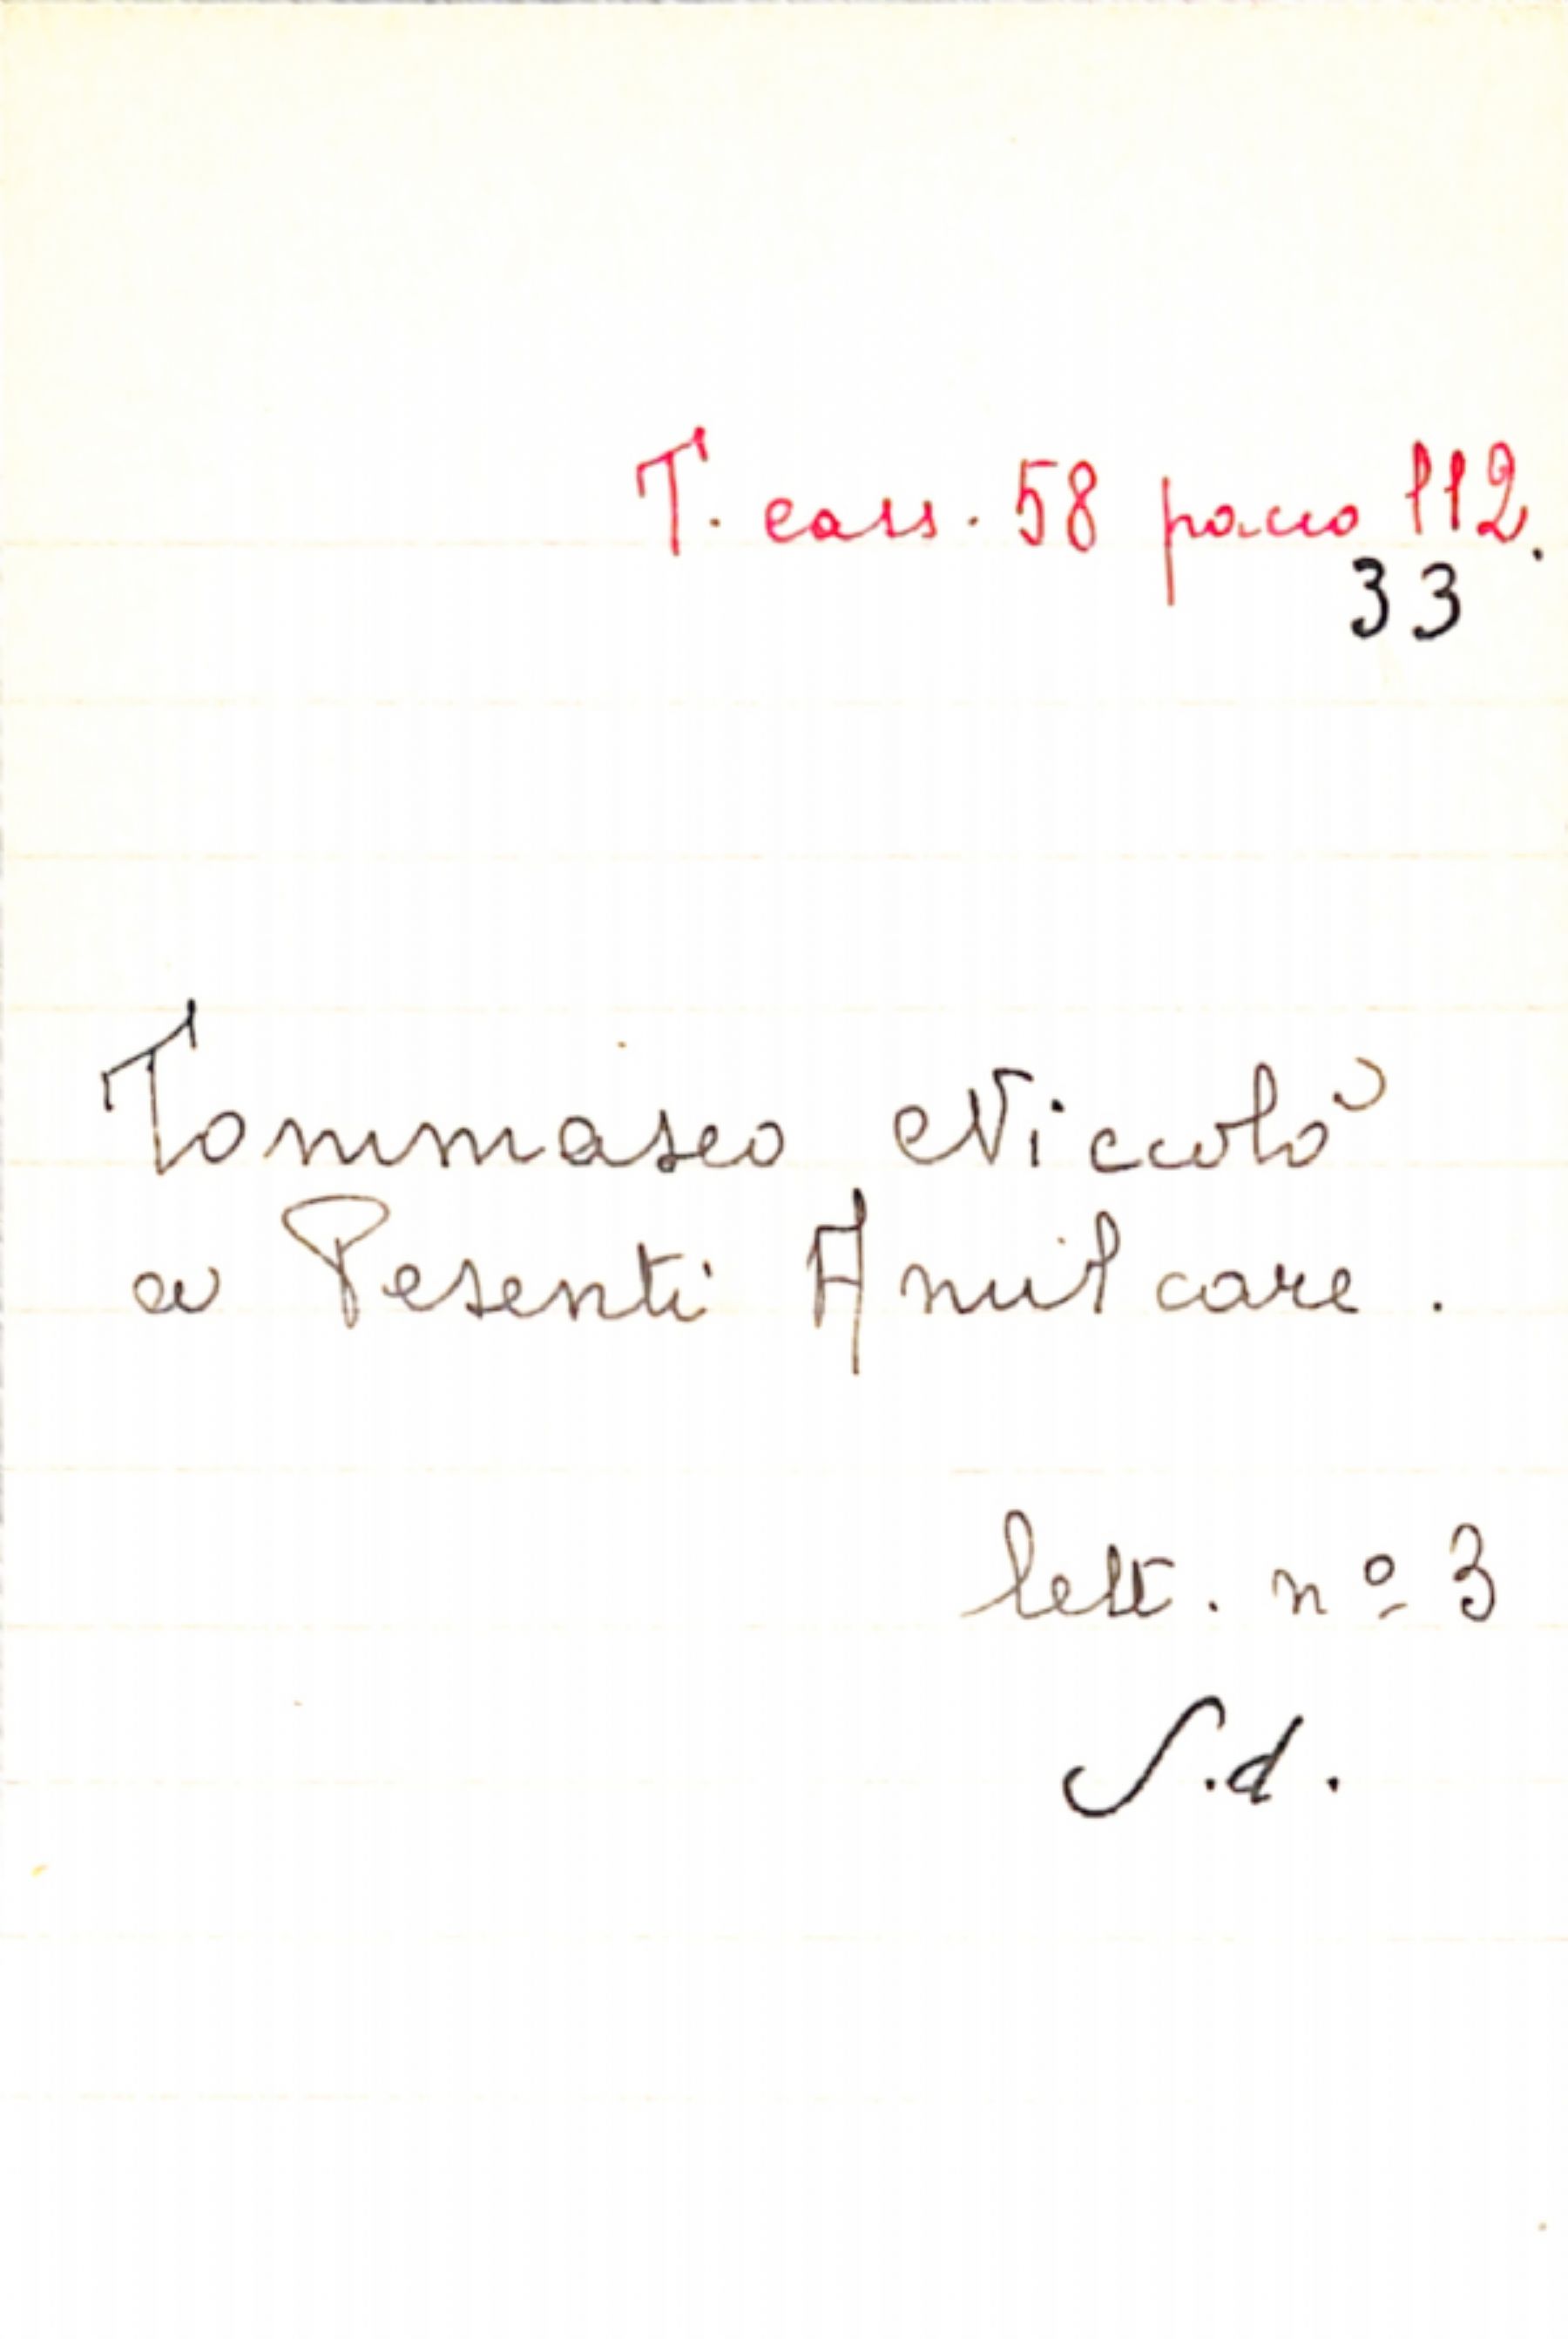 T. cass. 58 pacco 112.
33
Tommaseo Niccolò
a Pesenti Amilcare.
lett. nº 3
S.d.